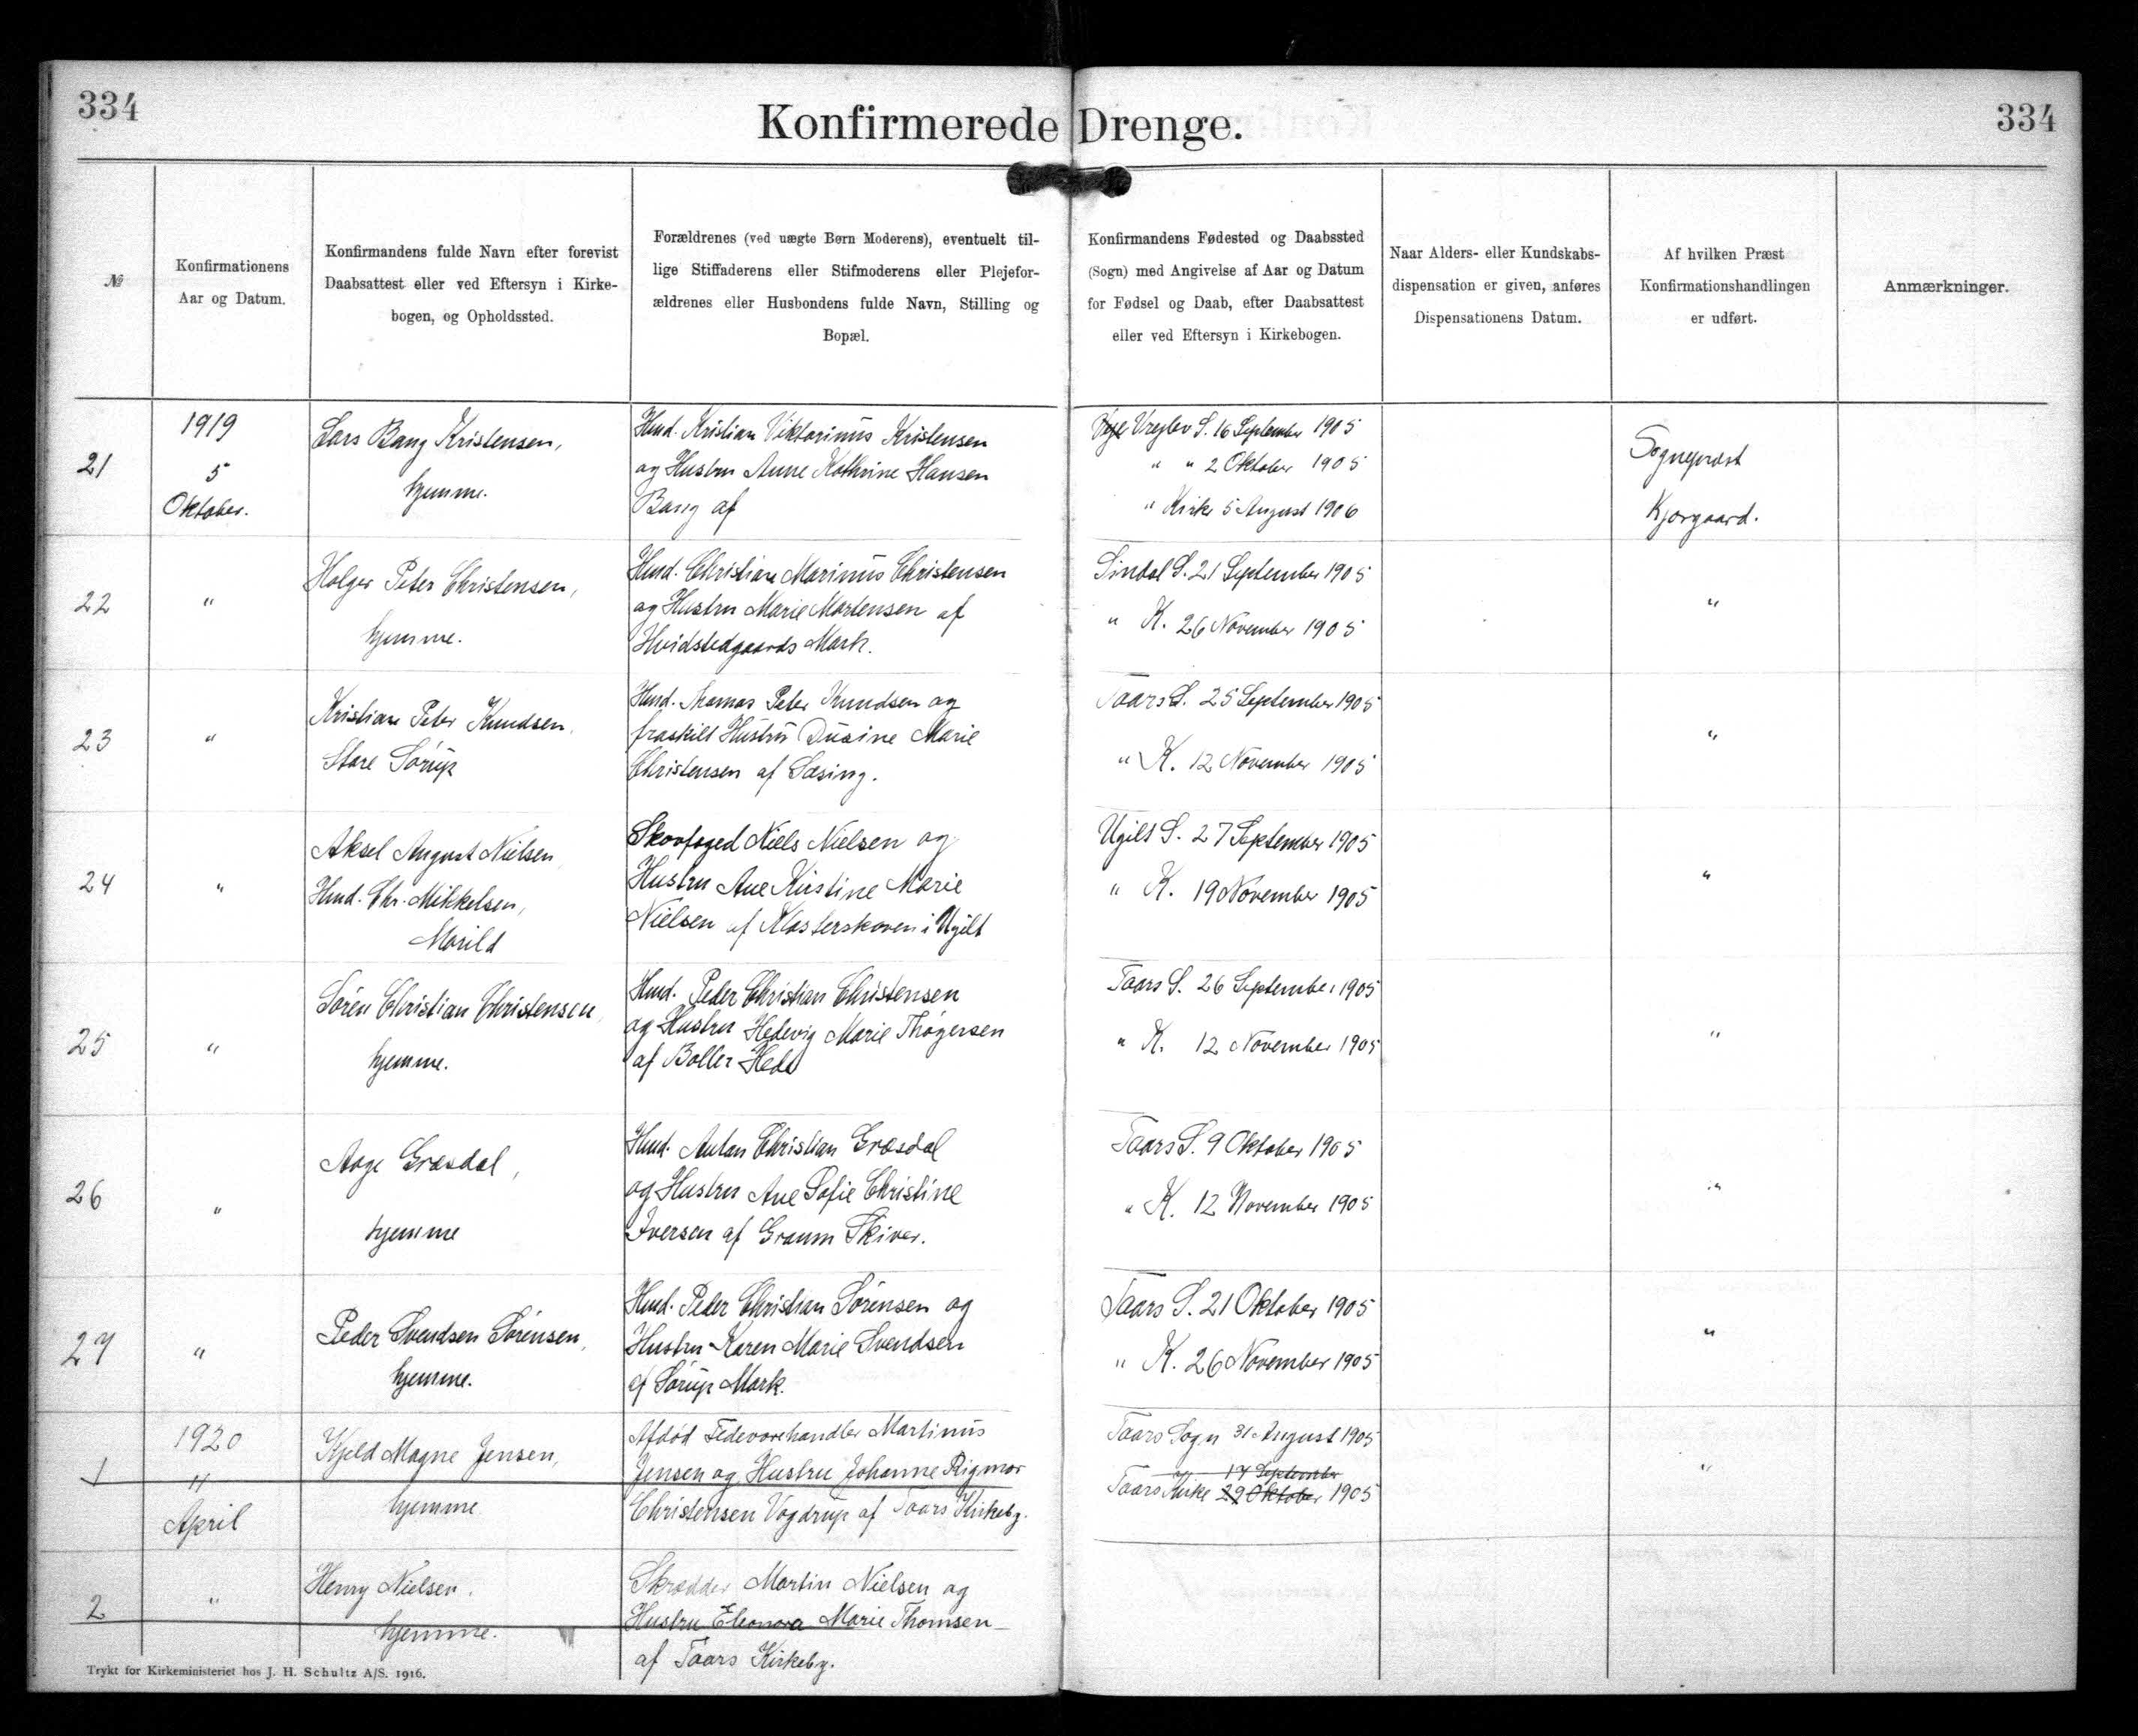 334
Konfirmerede Drenge.
334
№
Konfirmationens
Aar og Datum.
Konfirmandens fulde Navn efter forevist
Daabsattest eller ved Eftersyn i Kirke-
bogen, og Opholdssted.
Forældrenes (ved uægte Børn Moderens), eventuelt til-
lige Stiffaderens eller Stifmoderens eller Plejefor-
ældrenes eller Husbondens fulde Navn, Stilling og
Bopæl.
Konfirmandens Fødested og Daabssted
(Sogn) med Angivelse af Aar og Datum
for Fødsel og Daab, efter Daabsattest
eller ved Eftersyn i Kirkebogen.
Naar Alders- eller Kundskabs-
dispensation er given, anføres
Dispensationens Datum.
Af hvilken Præst
Konfirmationshandlingen
er udført.
Anmærkninger.
21
1919
5
Oktober.
Lars Bang Kristensen,
hjemme.
Hmd. Kristian Viktorinus Kristensen
og Hustru Anne Kathrine Hansen
Bang af
Vrejlev S. 16 September 1905
" " 2 Oktober 1905
" Kirke 5 August 1906
Sognepræst
Kjærgaard.
22
"
Holger Peter Christensen,
hjemme.
Hmd. Christian Marinus Christensen
og Hustru Marie Mortensen af
Hvidstedgaards Mark.
Sindal S. 21 September 1905
" K. 26 November 1905
"
23
"
Kristian Peter Knudsen,
Store Sørup
Hmd. Thomas Peter Knudsen og
fraskilt Hustru Dusine Marie
Christensen af Sæsing.
Taars S. 25 September 1905
" K. 12 November 1905
"
24
"
Aksel August Nielsen,
Hmd. Chr. Mikkelsen,
Morild
Skovfoged Niels Nielsen og
Hustru Ane Kirstine Marie
Nielsen af Klosterskoven i Ugilt
Ugilt S. 27 September 1905
" K. 19 November 1905
"
25
"
Søren Christian Christensen,
hjemme.
Hmd. Peder Christian Christensen
og Hustru Hedevig Marie Thøgersen
af Boller Hede
Taars S. 26 September 1905
" K. 12 November 1905
"
26
"
Aage Græsdal,
hjemme
Hmd. Anton Christian Græsdal
og Hustru Ane Sofie Christine
Iversen af Graum Skiver.
Taars S. 9 Oktober 1905
" K. 12 November 1905
"
27
"
Peder Svendsen Sørensen,
hjemme.
Hmd. Peder Christian Sørensen og
Hustru Karen Marie Svendsen
af Sørup Mark.
Taars S. 21 Oktober 1905
" K. 26 November 1905
"
1
1920
11
April
Kjeld Magne Jensen,
hjemme
Afdød Fedevarehandler Martinus
Jensen og Hustru Johanne Rigmor
Christensen Vogdrup af Taars Kirkeby.
Taars Sogn 31 August 1905
17 September
Taars Kirke 29 Oktober 1905
"
2
"
Henry Nielsen.
hjemme.
Skrædder Martin Nielsen og
Hustru Eleonora Marie Thomsen
af Taars Kirkeby.
Trykt for Kirkeministeriet hos J. H. Schultz A/S. 1916.